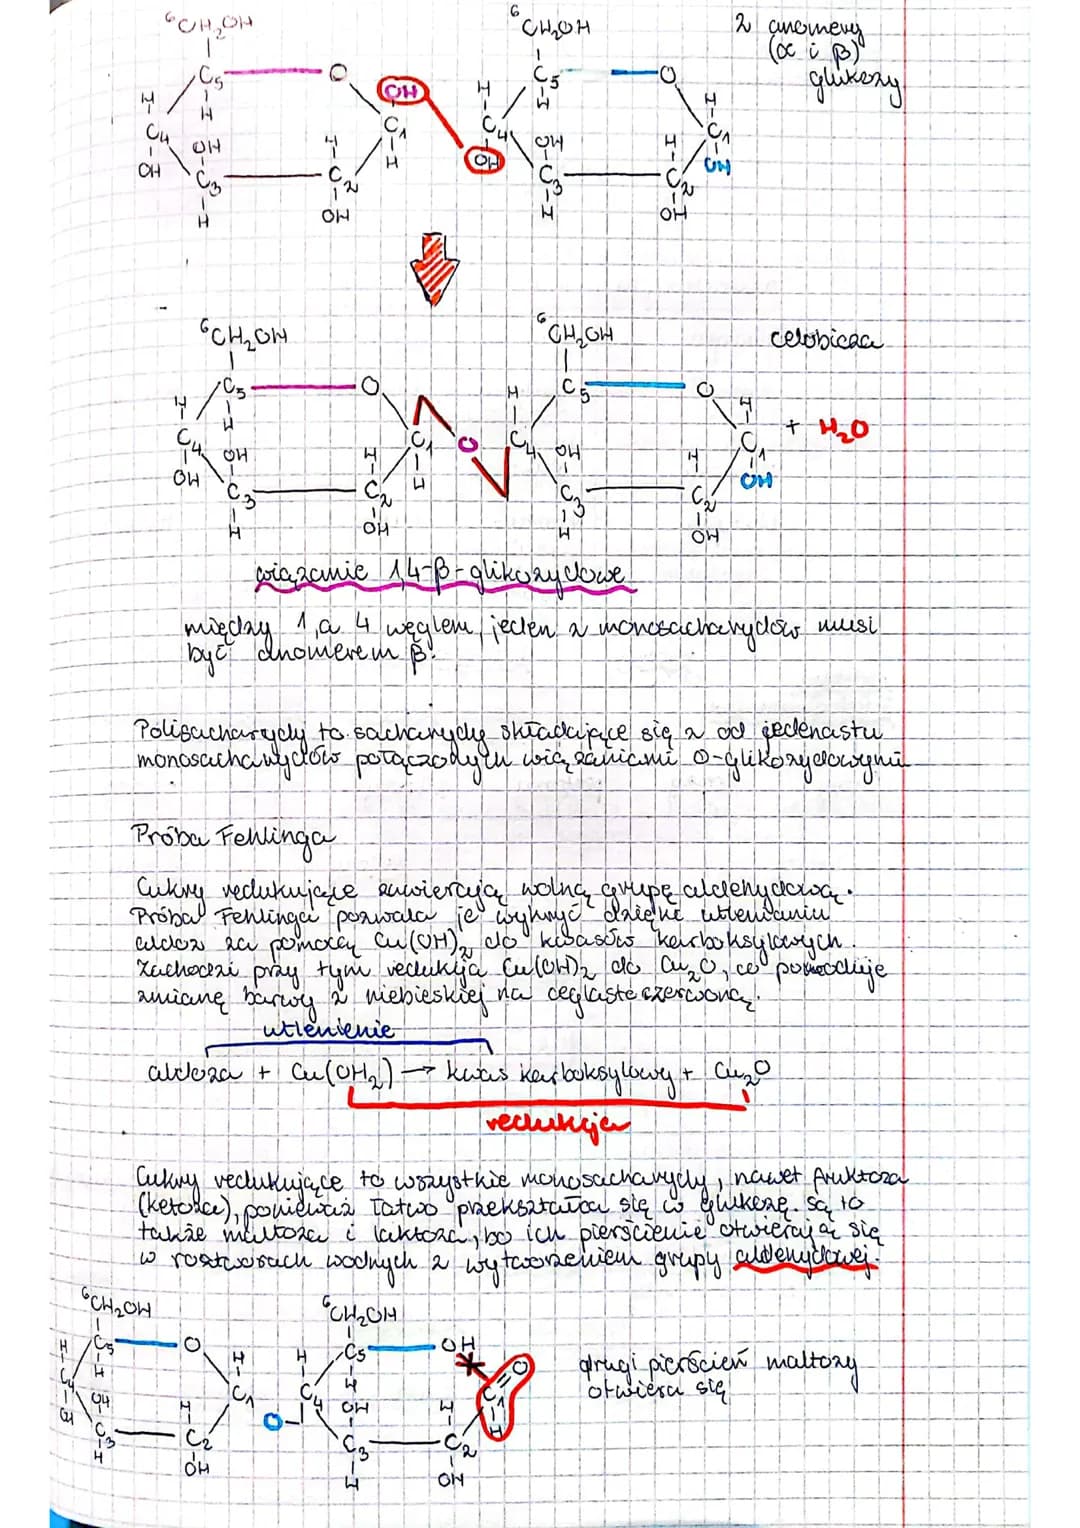 ⁶CH₂OH ⁶CH₂OH 2 anomery
(α i β)
glukozy
C₅ O OH C₅ O
H H H H H
C₄ OH H C₁ C₄ OH H C₁
OH C₃ C₂ H OH C₃ C₂ OH
H OH H OH
⁶CH₂OH ⁶CH₂OH celobioza
C₅ O H C₅ O H
H H + H₂O
C₄ OH H C₁ O C₄ OH H C₁
OH C₃ C₂ H C₃ C₂ OH
H OH H OH
wiązanie 1,4-β-glikozydowe
między 1, a 4 węglem, jeden z monosacharydów musi
być anomerem β.
Polisacharydy to sacharydy składające się z od jedenastu
monosacharydów połączonych wiązaniami O-glikozydowymi
Próba Fehlinga
Cukry redukujące zawierają wolną grupę aldehydową.
Próba Fehlinga pozwala je wykryć dzięki utlenianiu
aldoz za pomocą Cu(OH)₂ do kwasów karboksylowych.
Zachodzi przy tym redukcja Cu(OH)₂ do Cu₂O, co powoduje
zmianę barwy z niebieskiej na ceglastoczerwoną.
utlenienie
aldoza + Cu(OH₂) → kwas karboksylowy + Cu₂O
redukcja
Cukry redukujące to wszystkie monosacharydy, nawet fruktoza
(ketoza), ponieważ łatwo przekształca się w glukozę. Są to
także maltoza i laktoza, bo ich pierścienie otwierają się
w roztworach wodnych z wytworzeniem grupy aldehydowej.
⁶CH₂OH ⁶CH₂OH
C₅ O C₅ OH
H H H H H O
C₄ OH H C₁ C₄ OH H C₁
OH C₃ C₂ O C₃ C₂ H
H OH H OH
drugi pierścień maltozy
otwiera się